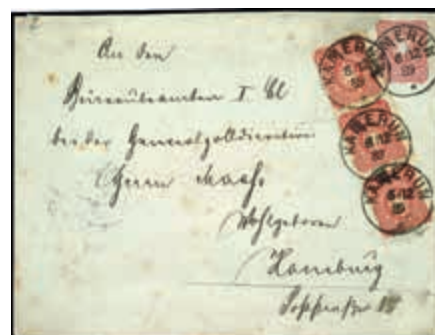 An den
Büreaubeamten I. Cl
bei der Generalzolldirection
Herrn
Wohlgeboren
Hamburg
KAMERUN
6/12
89
KAMERUN
6/12
KAMERUN
6/12
89
KAMERUN
6/12
89